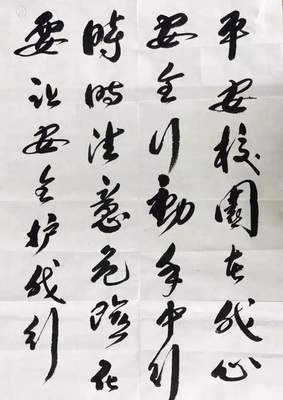 平安校園在我心
安全行動手中行
時時注意危險在
要让安全护我行